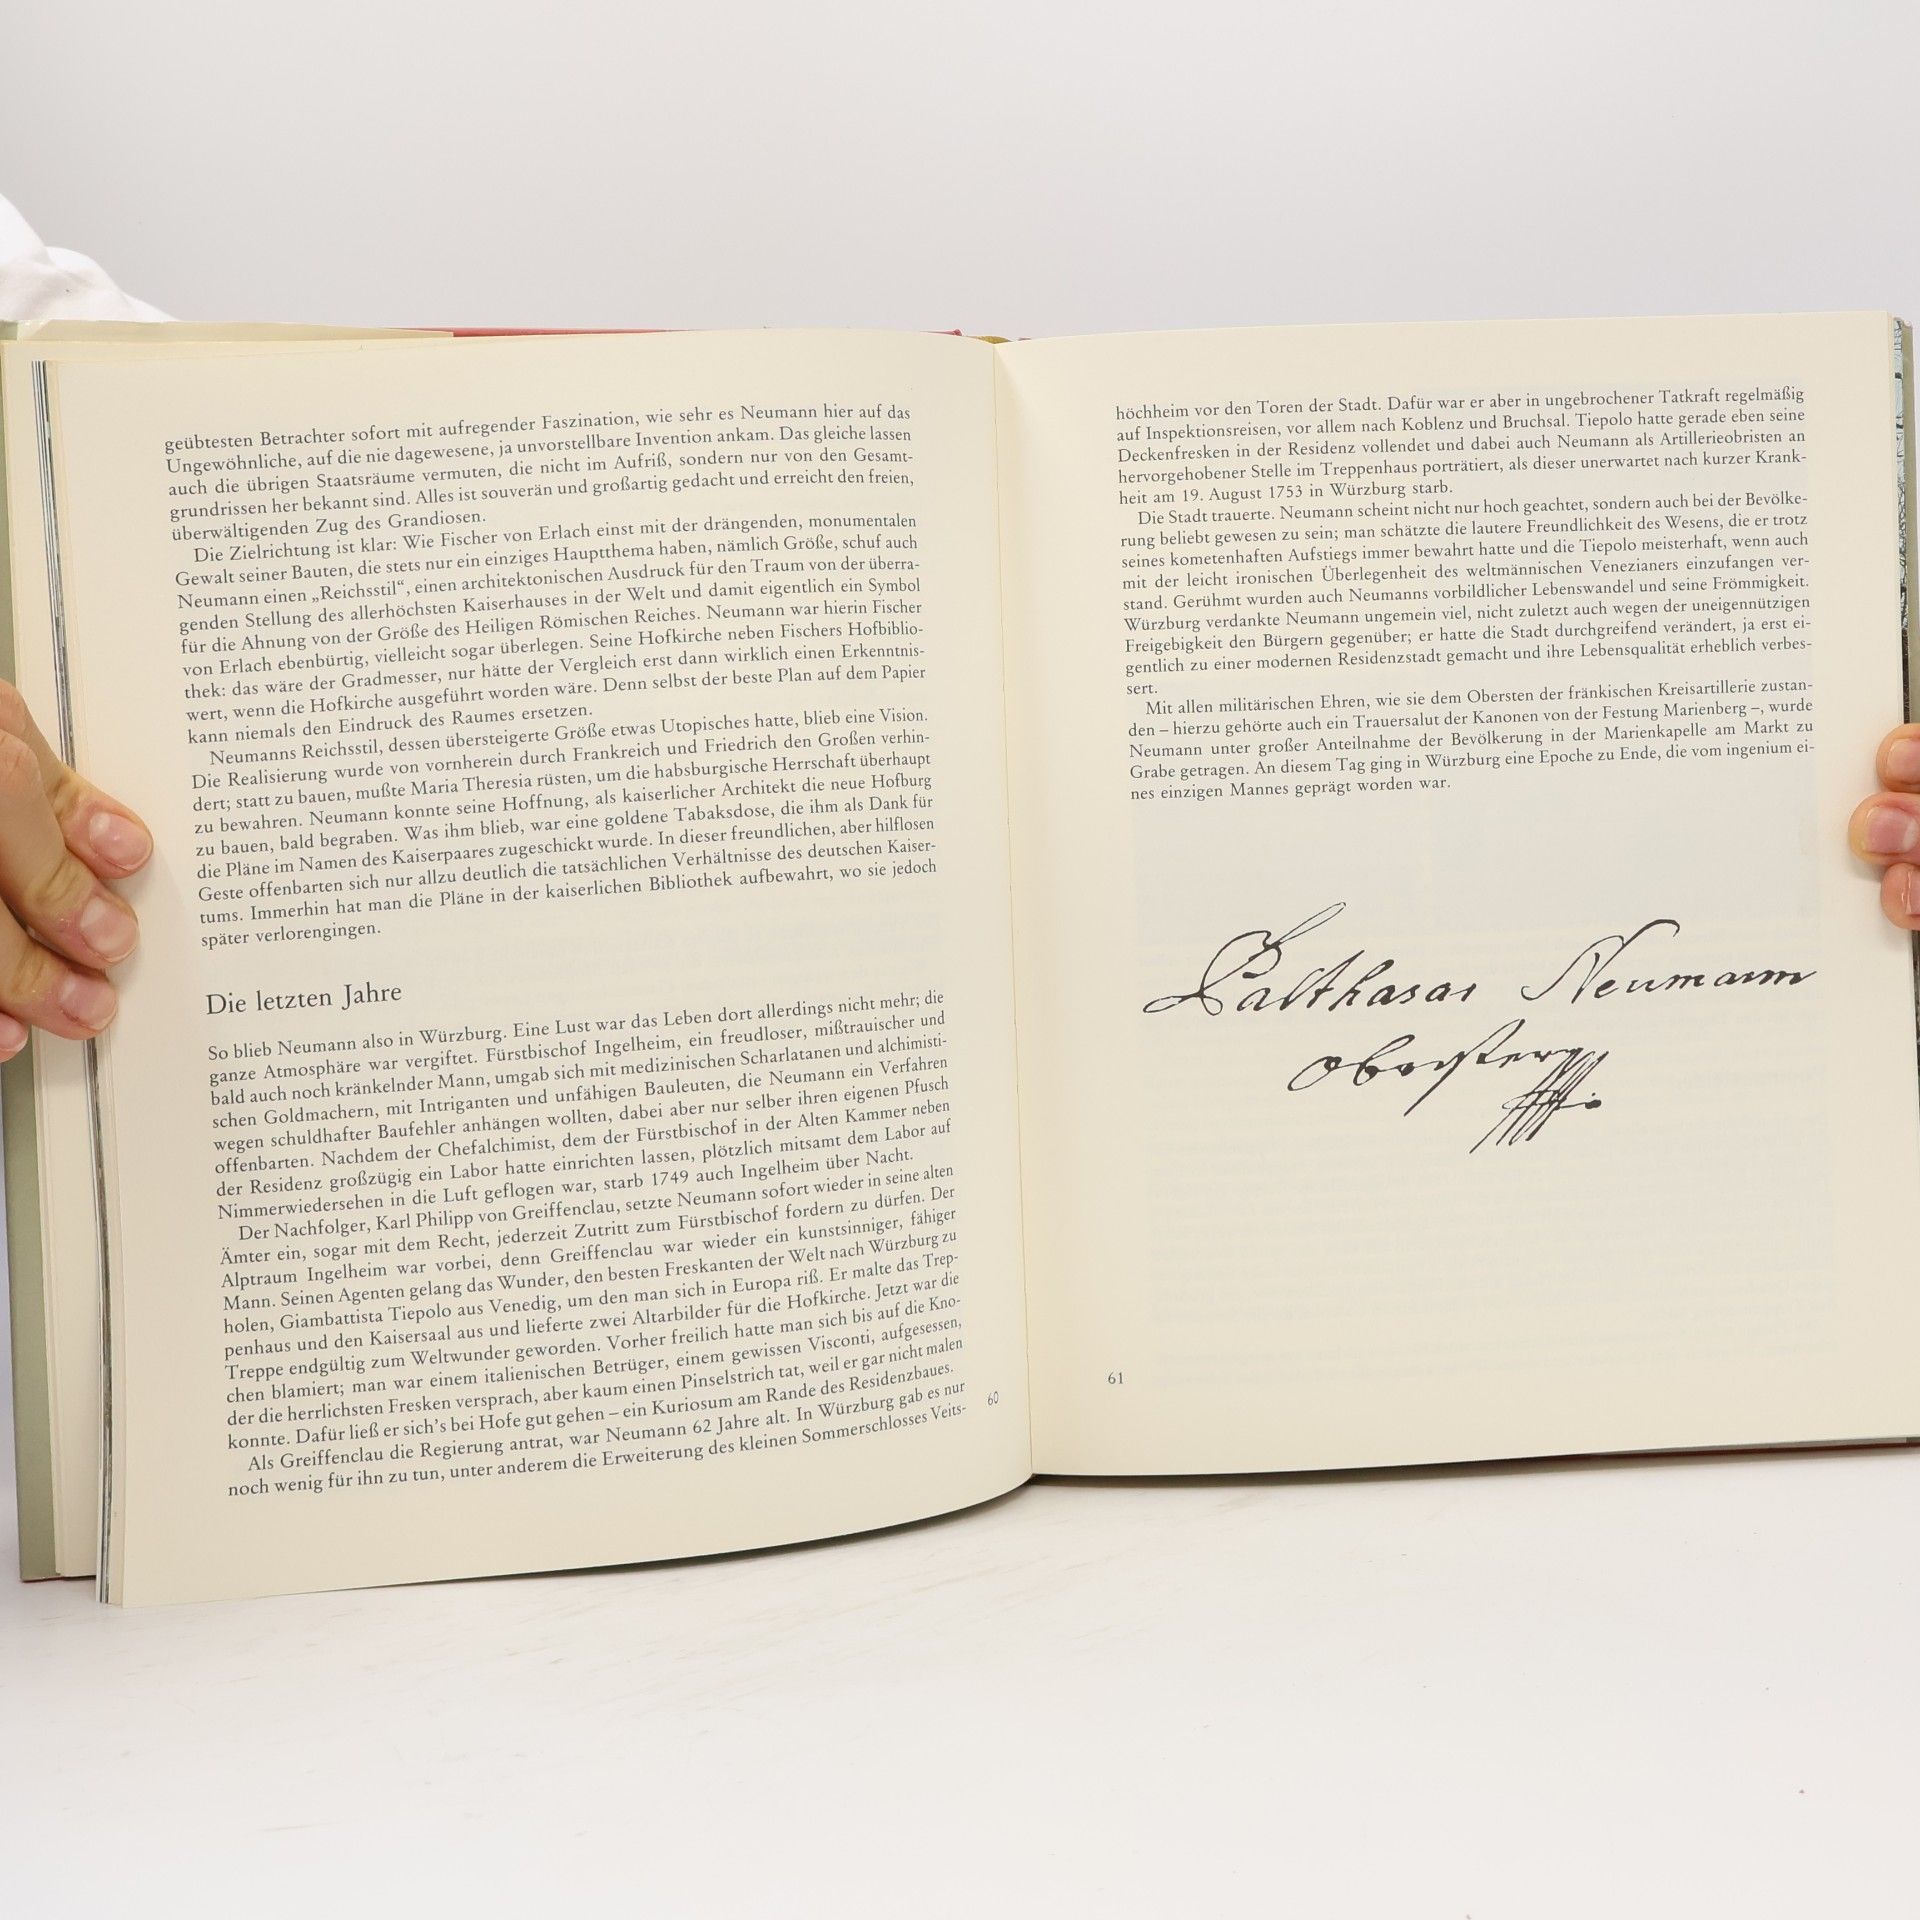 geübtesten Betrachter sofort mit aufregender Faszination, wie sehr es Neumann hier auf das
Ungewöhnliche, auf die nie dagewesene, ja unvorstellbare Invention ankam. Das gleiche lassen
auch die übrigen Staatsräume vermuten, die nicht im Aufriß, sondern nur von den Gesamt-
grundrissen her bekannt sind. Alles ist souverän und großartig gedacht und erreicht den freien,
überwältigenden Zug des Grandiosen.
Die Zielrichtung ist klar: Wie Fischer von Erlach einst mit der drängenden, monumentalen
Gewalt seiner Bauten, die stets nur ein einziges Hauptthema haben, nämlich Größe, schuf auch
Neumann einen „Reichsstil“, einen architektonischen Ausdruck für den Traum von der überra-
genden Stellung des allerhöchsten Kaiserhauses in der Welt und damit eigentlich ein Symbol
für die Ahnung von der Größe des Heiligen Römischen Reiches. Neumann war hierin Fischer
von Erlach ebenbürtig, vielleicht sogar überlegen. Seine Hofkirche neben Fischers Hofbiblio-
thek: das wäre der Gradmesser, nur hätte der Vergleich erst dann wirklich einen Erkenntnis-
wert, wenn die Hofkirche ausgeführt worden wäre. Denn selbst der beste Plan auf dem Papier
kann niemals den Eindruck des Raumes ersetzen.
Neumanns Reichsstil, dessen übersteigerte Größe etwas Utopisches hatte, blieb eine Vision.
Die Realisierung wurde von vornherein durch Frankreich und Friedrich den Großen verhin-
dert; statt zu bauen, mußte Maria Theresia rüsten, um die habsburgische Herrschaft überhaupt
zu bewahren. Neumann konnte seine Hoffnung, als kaiserlicher Architekt die neue Hofburg
zu bauen, bald begraben. Was ihm blieb, war eine goldene Tabaksdose, die ihm als Dank für
die Pläne im Namen des Kaiserpaares zugeschickt wurde. In dieser freundlichen, aber hilflosen
Geste offenbarten sich nur allzu deutlich die tatsächlichen Verhältnisse des deutschen Kaiser-
tums. Immerhin hat man die Pläne in der kaiserlichen Bibliothek aufbewahrt, wo sie jedoch
später verlorengingen.
Die letzten Jahre
So blieb Neumann also in Würzburg. Eine Lust war das Leben dort allerdings nicht mehr; die
ganze Atmosphäre war vergiftet. Fürstbischof Ingelheim, ein freudloser, mißtrauischer und
bald auch noch kränkelnder Mann, umgab sich mit medizinischen Scharlatanen und alchimisti-
schen Goldmachern, mit Intriganten und unfähigen Bauleuten, die Neumann ein Verfahren
wegen schuldhafter Baufehler anhängen wollten, dabei aber nur selber ihren eigenen Pfusch
offenbarten. Nachdem der Chefalchimist, dem der Fürstbischof in der Alten Kammer neben
der Residenz großzügig ein Labor hatte einrichten lassen, plötzlich mitsamt dem Labor auf
Nimmerwiedersehen in die Luft geflogen war, starb 1749 auch Ingelheim über Nacht.
Der Nachfolger, Karl Philipp von Greiffenclau, setzte Neumann sofort wieder in seine alten
Ämter ein, sogar mit dem Recht, jederzeit Zutritt zum Fürstbischof fordern zu dürfen. Der
Alptraum Ingelheim war vorbei, denn Greiffenclau war wieder ein kunstsinniger, fähiger
Mann. Seinen Agenten gelang das Wunder, den besten Freskanten der Welt nach Würzburg zu
holen, Giambattista Tiepolo aus Venedig, um den man sich in Europa riß. Er malte das Trep-
penhaus und den Kaisersaal aus und lieferte zwei Altarbilder für die Hofkirche. Jetzt war die
Treppe endgültig zum Weltwunder geworden. Vorher freilich hatte man sich bis auf die Kno-
chen blamiert; man war einem italienischen Betrüger, einem gewissen Visconti, aufgesessen,
der die herrlichsten Fresken versprach, aber kaum einen Pinselstrich tat, weil er gar nicht malen
konnte. Dafür ließ er sich's bei Hofe gut gehen – ein Kuriosum am Rande des Residenzbaues.
Als Greiffenclau die Regierung antrat, war Neumann 62 Jahre alt. In Würzburg gab es nur
noch wenig für ihn zu tun, unter anderem die Erweiterung des kleinen Sommerschlosses Veits-
60
höchheim vor den Toren der Stadt. Dafür war er aber in ungebrochener Tatkraft regelmäßig
auf Inspektionsreisen, vor allem nach Koblenz und Bruchsal. Tiepolo hatte gerade eben seine
Deckenfresken in der Residenz vollendet und dabei auch Neumann als Artillerieobristen an
hervorgehobener Stelle im Treppenhaus porträtiert, als dieser unerwartet nach kurzer Krank-
heit am 19. August 1753 in Würzburg starb.
Die Stadt trauerte. Neumann scheint nicht nur hoch geachtet, sondern auch bei der Bevölke-
rung beliebt gewesen zu sein; man schätzte die lautere Freundlichkeit des Wesens, die er trotz
seines kometenhaften Aufstiegs immer bewahrt hatte und die Tiepolo meisterhaft, wenn auch
mit der leicht ironischen Überlegenheit des weltmännischen Venezianers einzufangen ver-
stand. Gerühmt wurden auch Neumanns vorbildlicher Lebenswandel und seine Frömmigkeit.
Würzburg verdankte Neumann ungemein viel, nicht zuletzt auch wegen der uneigennützigen
Freigebigkeit den Bürgern gegenüber; er hatte die Stadt durchgreifend verändert, ja erst ei-
gentlich zu einer modernen Residenzstadt gemacht und ihre Lebensqualität erheblich verbes-
sert.
Mit allen militärischen Ehren, wie sie dem Obersten der fränkischen Kreisartillerie zustan-
den – hierzu gehörte auch ein Trauersalut der Kanonen von der Festung Marienberg –, wurde
Neumann unter großer Anteilnahme der Bevölkerung in der Marienkapelle am Markt zu
Grabe getragen. An diesem Tag ging in Würzburg eine Epoche zu Ende, die vom ingenium ei-
nes einzigen Mannes geprägt worden war.
Balthasar Neumann
61